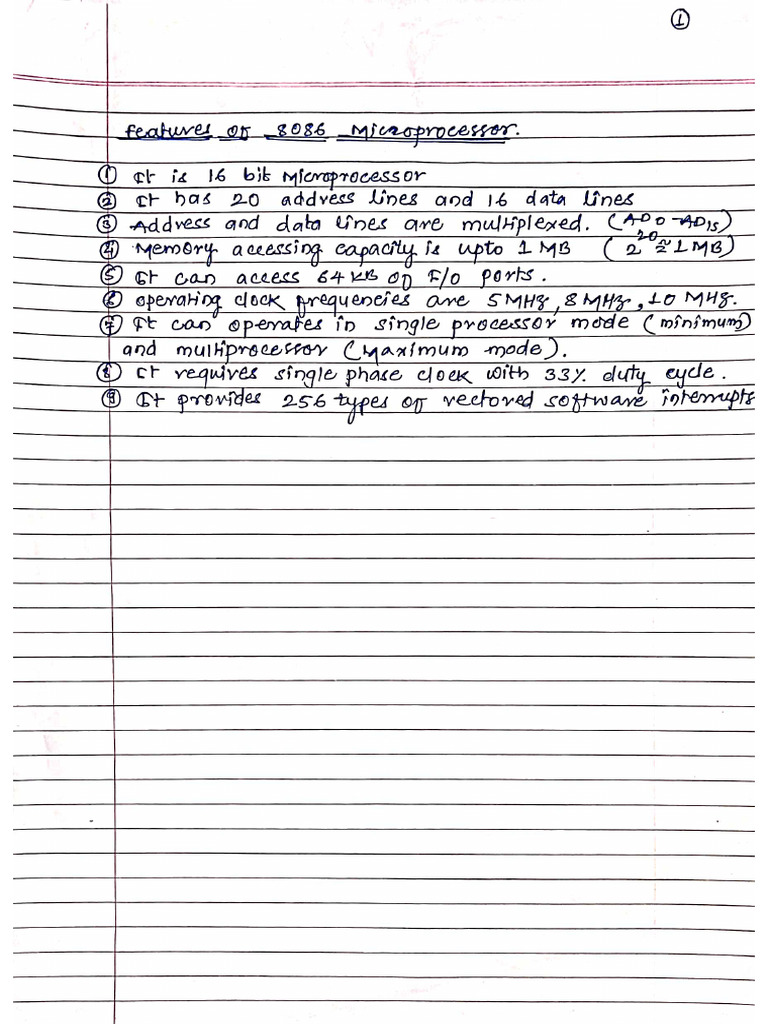 ①
Features of 8086 Microprocessor.
① It is 16 bit Microprocessor
② It has 20 address lines and 16 data lines
③ Address and data lines are multiplexed. (AD0-AD15)
④ Memory accessing capacity is upto 1 MB (2^20 ≈ 1 MB)
⑤ It can access 64 KB of I/O ports.
⑥ Operating clock frequencies are 5 MHz, 8 MHz, 10 MHz.
⑦ It can operates in single processor mode (minimum)
and multiprocessor (Maximum mode).
⑧ It requires single phase clock with 33% duty cycle.
⑨ It provides 256 types of vectored software interrupts